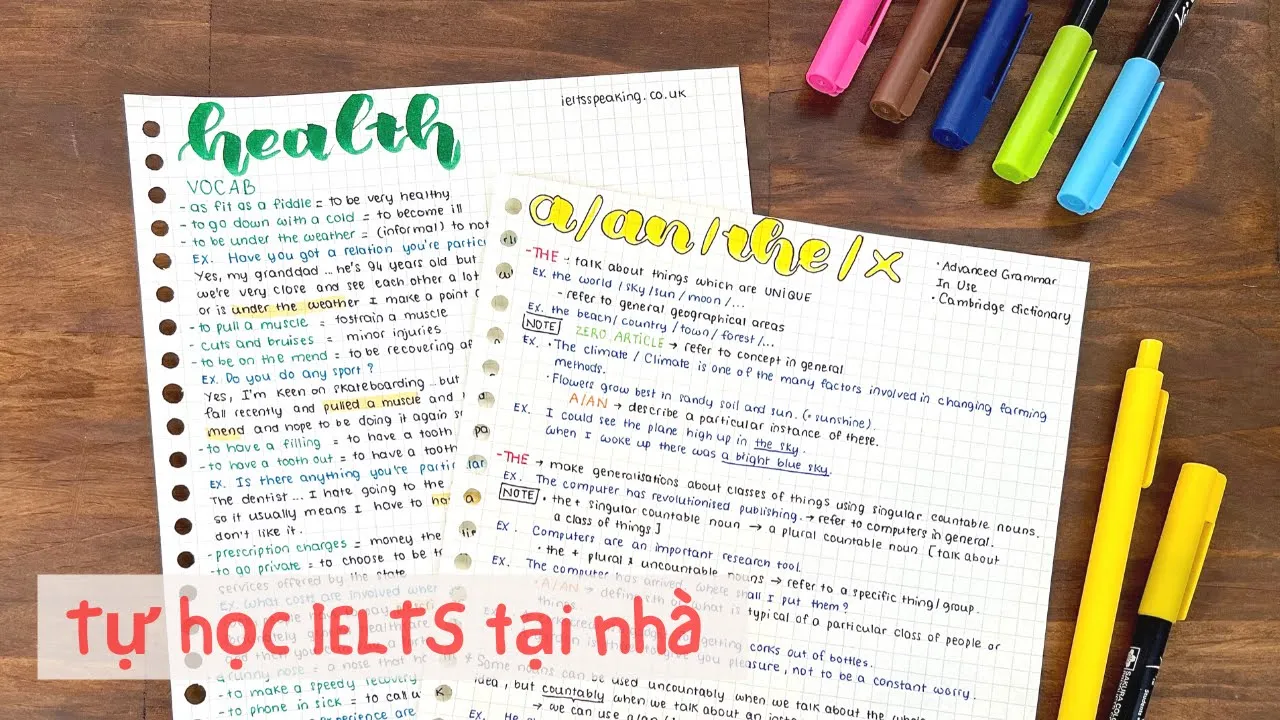 health
ieltsspeaking.co.uk
VOCAB
- as fit as a fiddle = to be very healthy
- to go down with a cold = to become ill
- to be under the weather = (informal) to not
EX. Have you got a relation you're partic
Yes, my granddad ... he's 94 years old but
we're very close and see each other a lot
or is under the weather I make a point
- to pull a muscle = tostrain a muscle
- cuts and bruises = minor injuries
- to be on the mend = to be recovering
EX. Do you do any sport?
Yes, I'm keen on skateboarding ... but
fall recently and pulled a muscle and
mend and hope to be doing it again
- to have a filling = to have a tooth
- to have a tooth out = to have a tooth
EX. Is there anything you're particular
The dentist ... I hate going to the
so it usually means I have to
don't like it.
- prescription charges = money the
- to go private = to choose to be
services offered by the state
EX. what costs are involved when
- to make a speedy recovery
- to phone in sick = to call
a/an/the/x
• Advanced Grammar
In Use
• Cambridge dictionary
- THE : talk about things which are UNIQUE
EX. the world / sky / sun / moon / ...
- refer to general geographical areas
EX. the beach / country / town / forest / ...
NOTE ZERO ARTICLE → refer to concept in general
EX. • The climate / Climate is one of the many factors involved in changing farming
methods.
• Flowers grow best in sandy soil and sun. (= sunshine).
A/AN → describe a particular instance of these.
EX. I could see the plane high up in the sky.
When I woke up there was a blight blue sky.
- THE → make generalisations about classes of things using singular countable nouns.
EX. The computer has revolutionised publishing. → refer to computers in general.
NOTE • the + singular countable noun → a plural countable noun [talk about
a class of things]
EX. Computers are an important research tool.
• the + plural & uncountable nouns → refer to a specific thing/group.
EX. The computer has arrived. where shall I put them?
• A/AN → define sth or what is typical of a particular class of people or
things.
getting corks out of bottles.
give you pleasure, not to be a constant worry.
* Some nouns can be used uncountably when we talk about the whole
idea, but countably when we talk about an
→ we can use a/an
EX.
tự học IELTS tại nhà
SAKURA